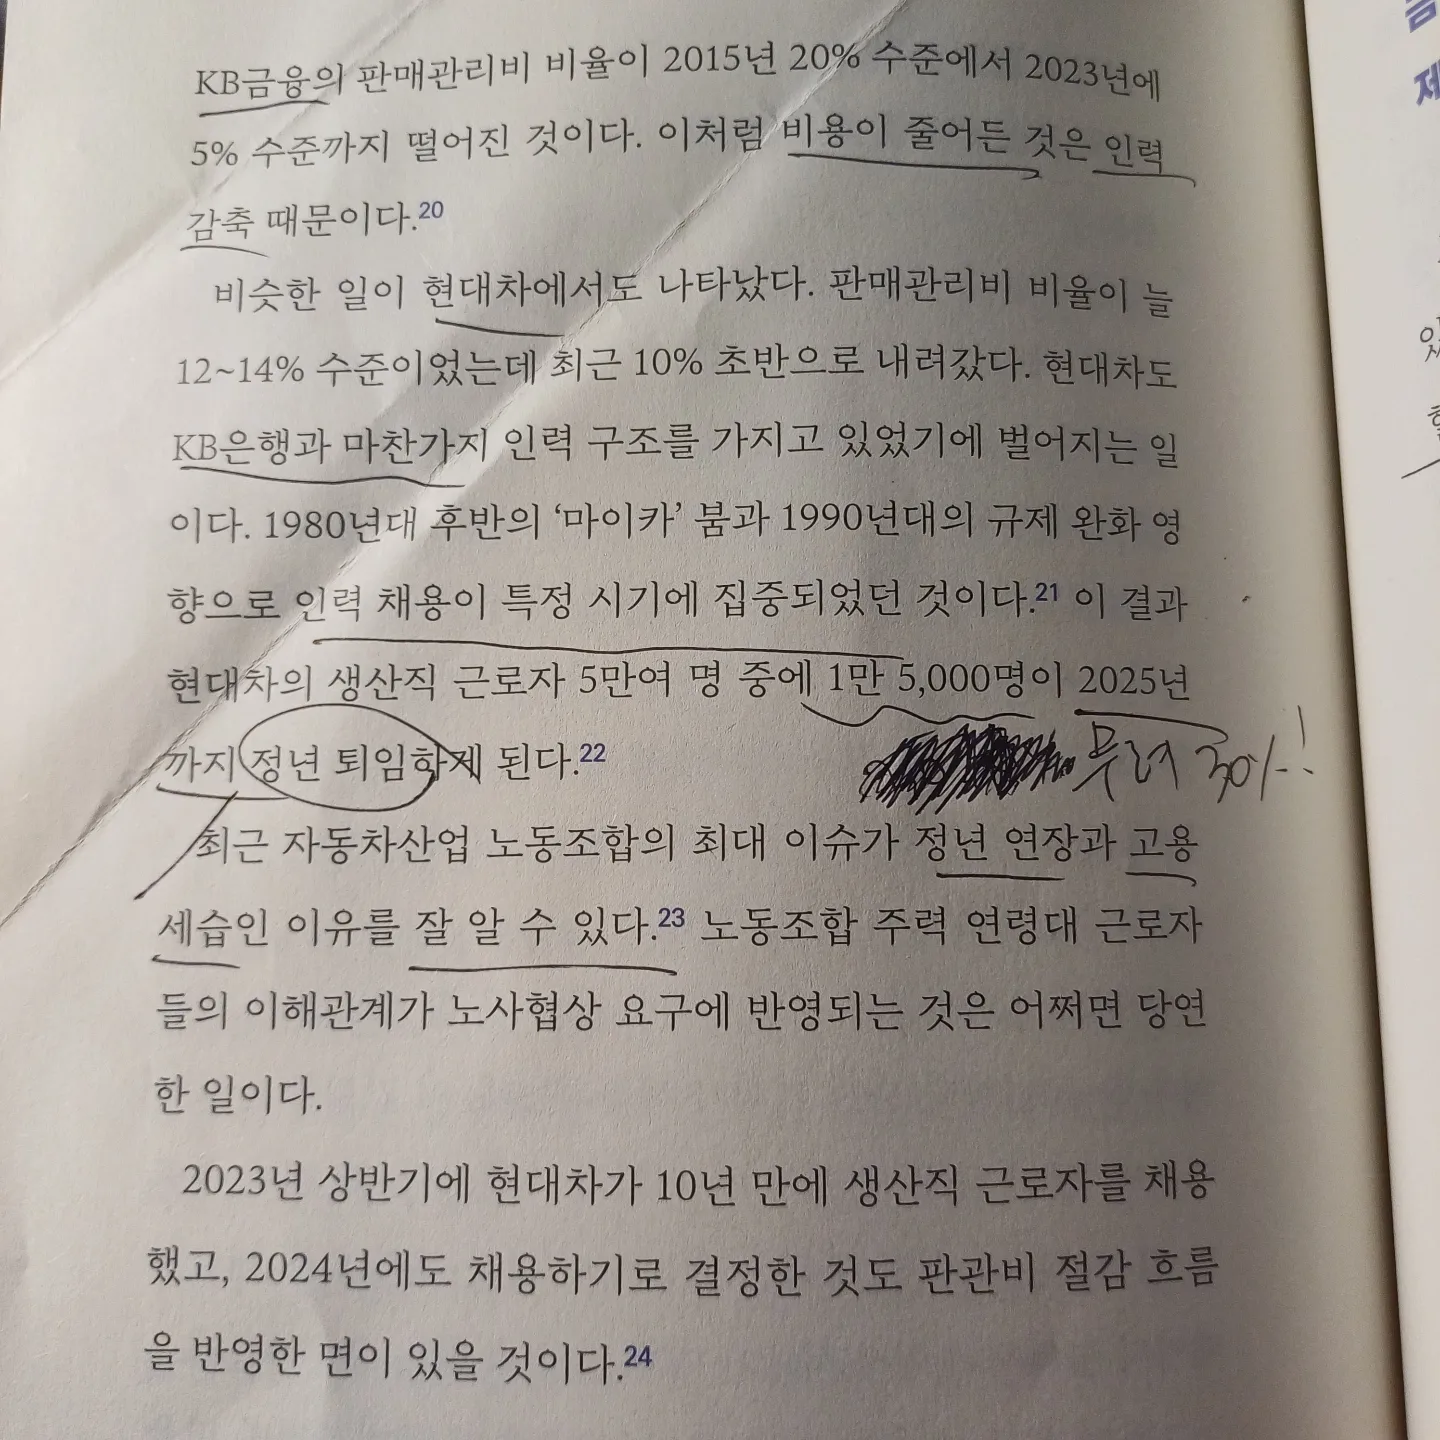 KB금융의 판매관리비 비율이 2015년 20% 수준에서 2023년에
5% 수준까지 떨어진 것이다. 이처럼 비용이 줄어든 것은 인력
감축 때문이다.20
비슷한 일이 현대차에서도 나타났다. 판매관리비 비율이 늘
12~14% 수준이었는데 최근 10% 초반으로 내려갔다. 현대차도
KB은행과 마찬가지 인력 구조를 가지고 있었기에 벌어지는 일
이다. 1980년대 후반의 ‘마이카’ 붐과 1990년대의 규제 완화 영
향으로 인력 채용이 특정 시기에 집중되었던 것이다.21 이 결과
현대차의 생산직 근로자 5만여 명 중에 1만 5,000명이 2025년
까지 정년 퇴임하게 된다.22
무려 30%!
최근 자동차산업 노동조합의 최대 이슈가 정년 연장과 고용
세습인 이유를 잘 알 수 있다.23 노동조합 주력 연령대 근로자
들의 이해관계가 노사협상 요구에 반영되는 것은 어쩌면 당연
한 일이다.
2023년 상반기에 현대차가 10년 만에 생산직 근로자를 채용
했고, 2024년에도 채용하기로 결정한 것도 판관비 절감 흐름
을 반영한 면이 있을 것이다.24